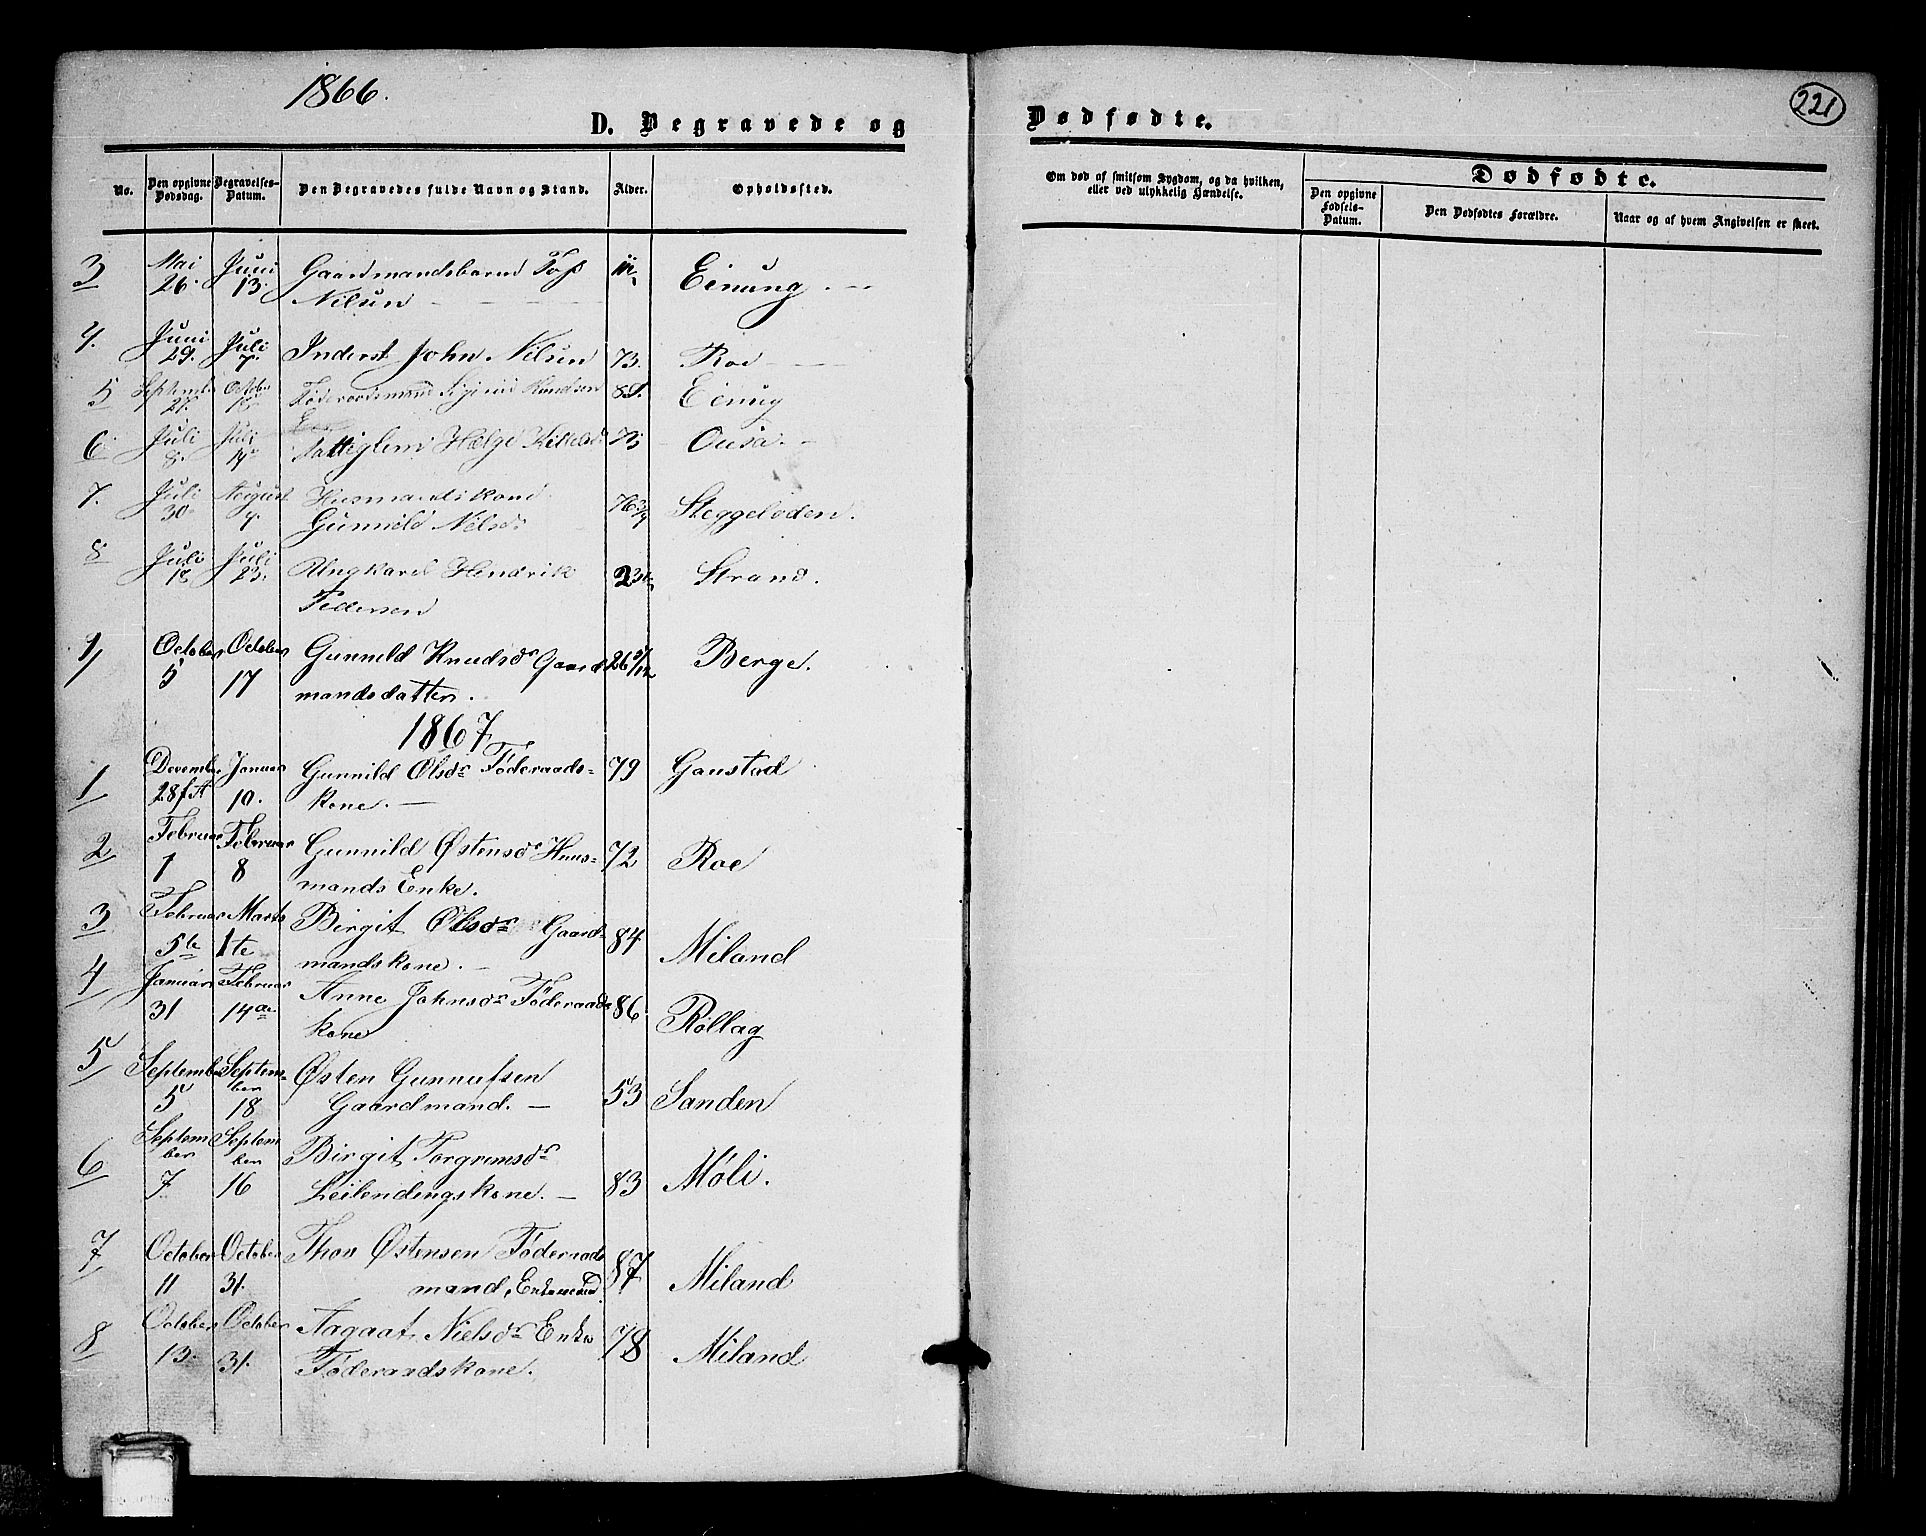 1866.
D. Begravede og
No.
Den opgivne Dødsdag.
Begravelses-Datum.
Den Begravedes fulde Navn og Stand.
Alder.
Opholdssted.
3 Mai Juni Gaardmandsbarn
26. 13. Nilsen Einung
4. Juni Juli Inderst John Nilsen 73. Roe
29. 7.
5 September October Føderaadsmand Knudsen Einug
27.
6 Juli Juli Helge Ousa.
8.
7. Juli August Huusmandskone 76 3/4 Steggeloden.
30 4. Gunnild Nelsdr
8 Juli Juli Ungkarl Hendrik Strand.
18 23. Pedersen
1/ October October Gunnild Knudsdr Gaard Berge.
5 17 mandsdatter.
1867
1 December Januar Gunnild Olsdr Føderaads- 79 Gaustad
28 10. kone.
2 Februar Februar Gunnild Østensdr Huus- 72 Roe
1 8 mands Enke.
3 Februar Marts Birgit Olsdr Gaard- 84 Miland
5te 1te mandskone.
4 Januar Februar Anne Johnsdr Føderaads 86 Rollag
31 14de kone
5 September Septem- Østen Gunnufsen 53 Sanden
5 ber 18 Gaardmand.
6 Septem Septem Birgit Torgrimsdr 83 Møli.
ber ber
7. 16 Leilendingskone.
7 October October Thor Østensen Føderaads 87 Miland
11 31. mand, Enkemand
8 October October Aagaat Nielsdr Enke 78 Miland
13. 31. Føderaadskone.
Dødfødte.
221
Om død af smitsom Sygdom, og da hvilken, eller ved ulykkelig Hændelse.
Dødfødte.
Den opgivne Fødsels-Datum.
Den Dødfødtes Forældre.
Naar og af hvem Angivelsen er skeet.